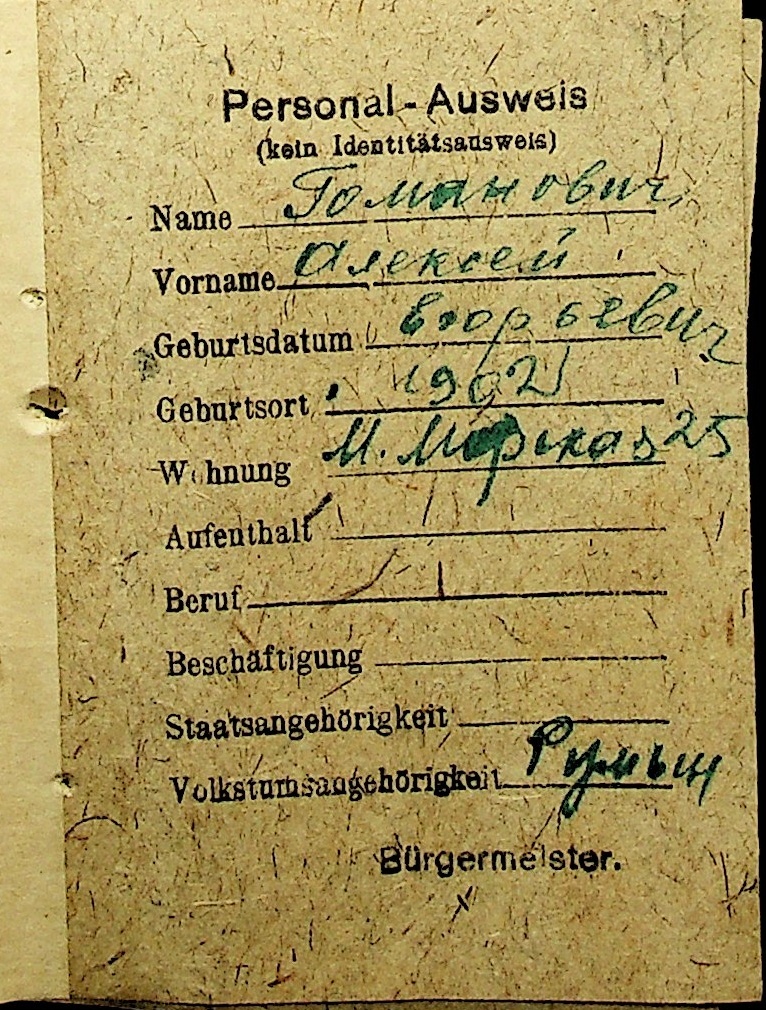 47
Personal-Ausweis
(kein Identitätsausweis)
Name Гоманович
Vorname Алексей
Geburtsdatum Егорьевич
Geburtsort 1902
Wohnung М. Морская 25
Aufenthalt
Beruf
Beschäftigung
Staatsangehörigkeit
Volkstumsangehörigkeit Румын
Bürgermeister.